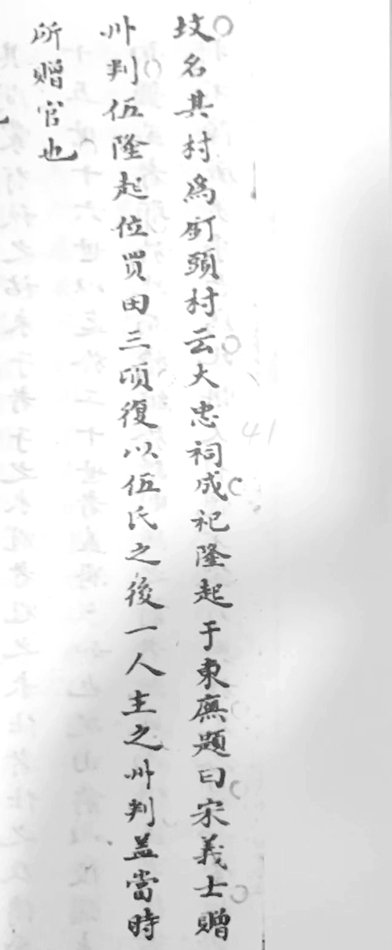 坟名其村為釘頭村云大忠祠成祀隆起于東廡題曰宋義士贈
州判伍隆起位買田三頃復以伍氏之後一人主之州判盖當時
所贈官也